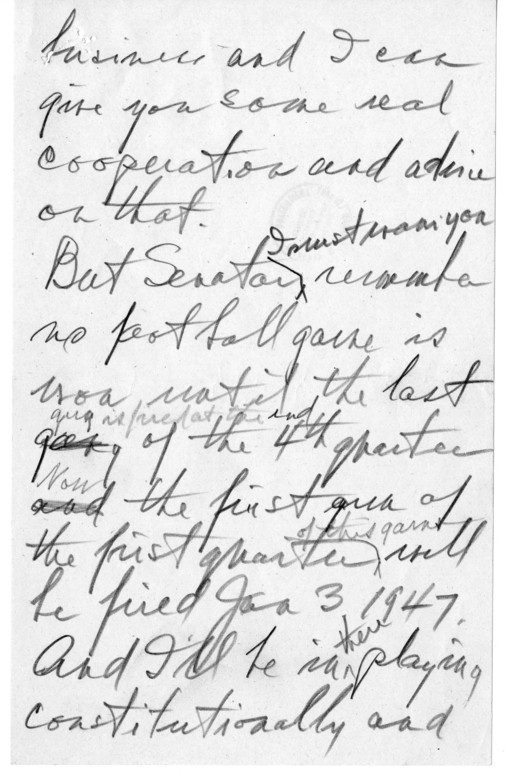 business and I can
give you some real
cooperation and advice
on that.
I must warn you
But Senator, remember
no football game is
won until the last
gun is fired at the end
of the 4th quarter
Now
and the first gun of
of this game
the first quarter, will
be fired Jan 3 1947.
there
And I'll be in playing
constitutionally and